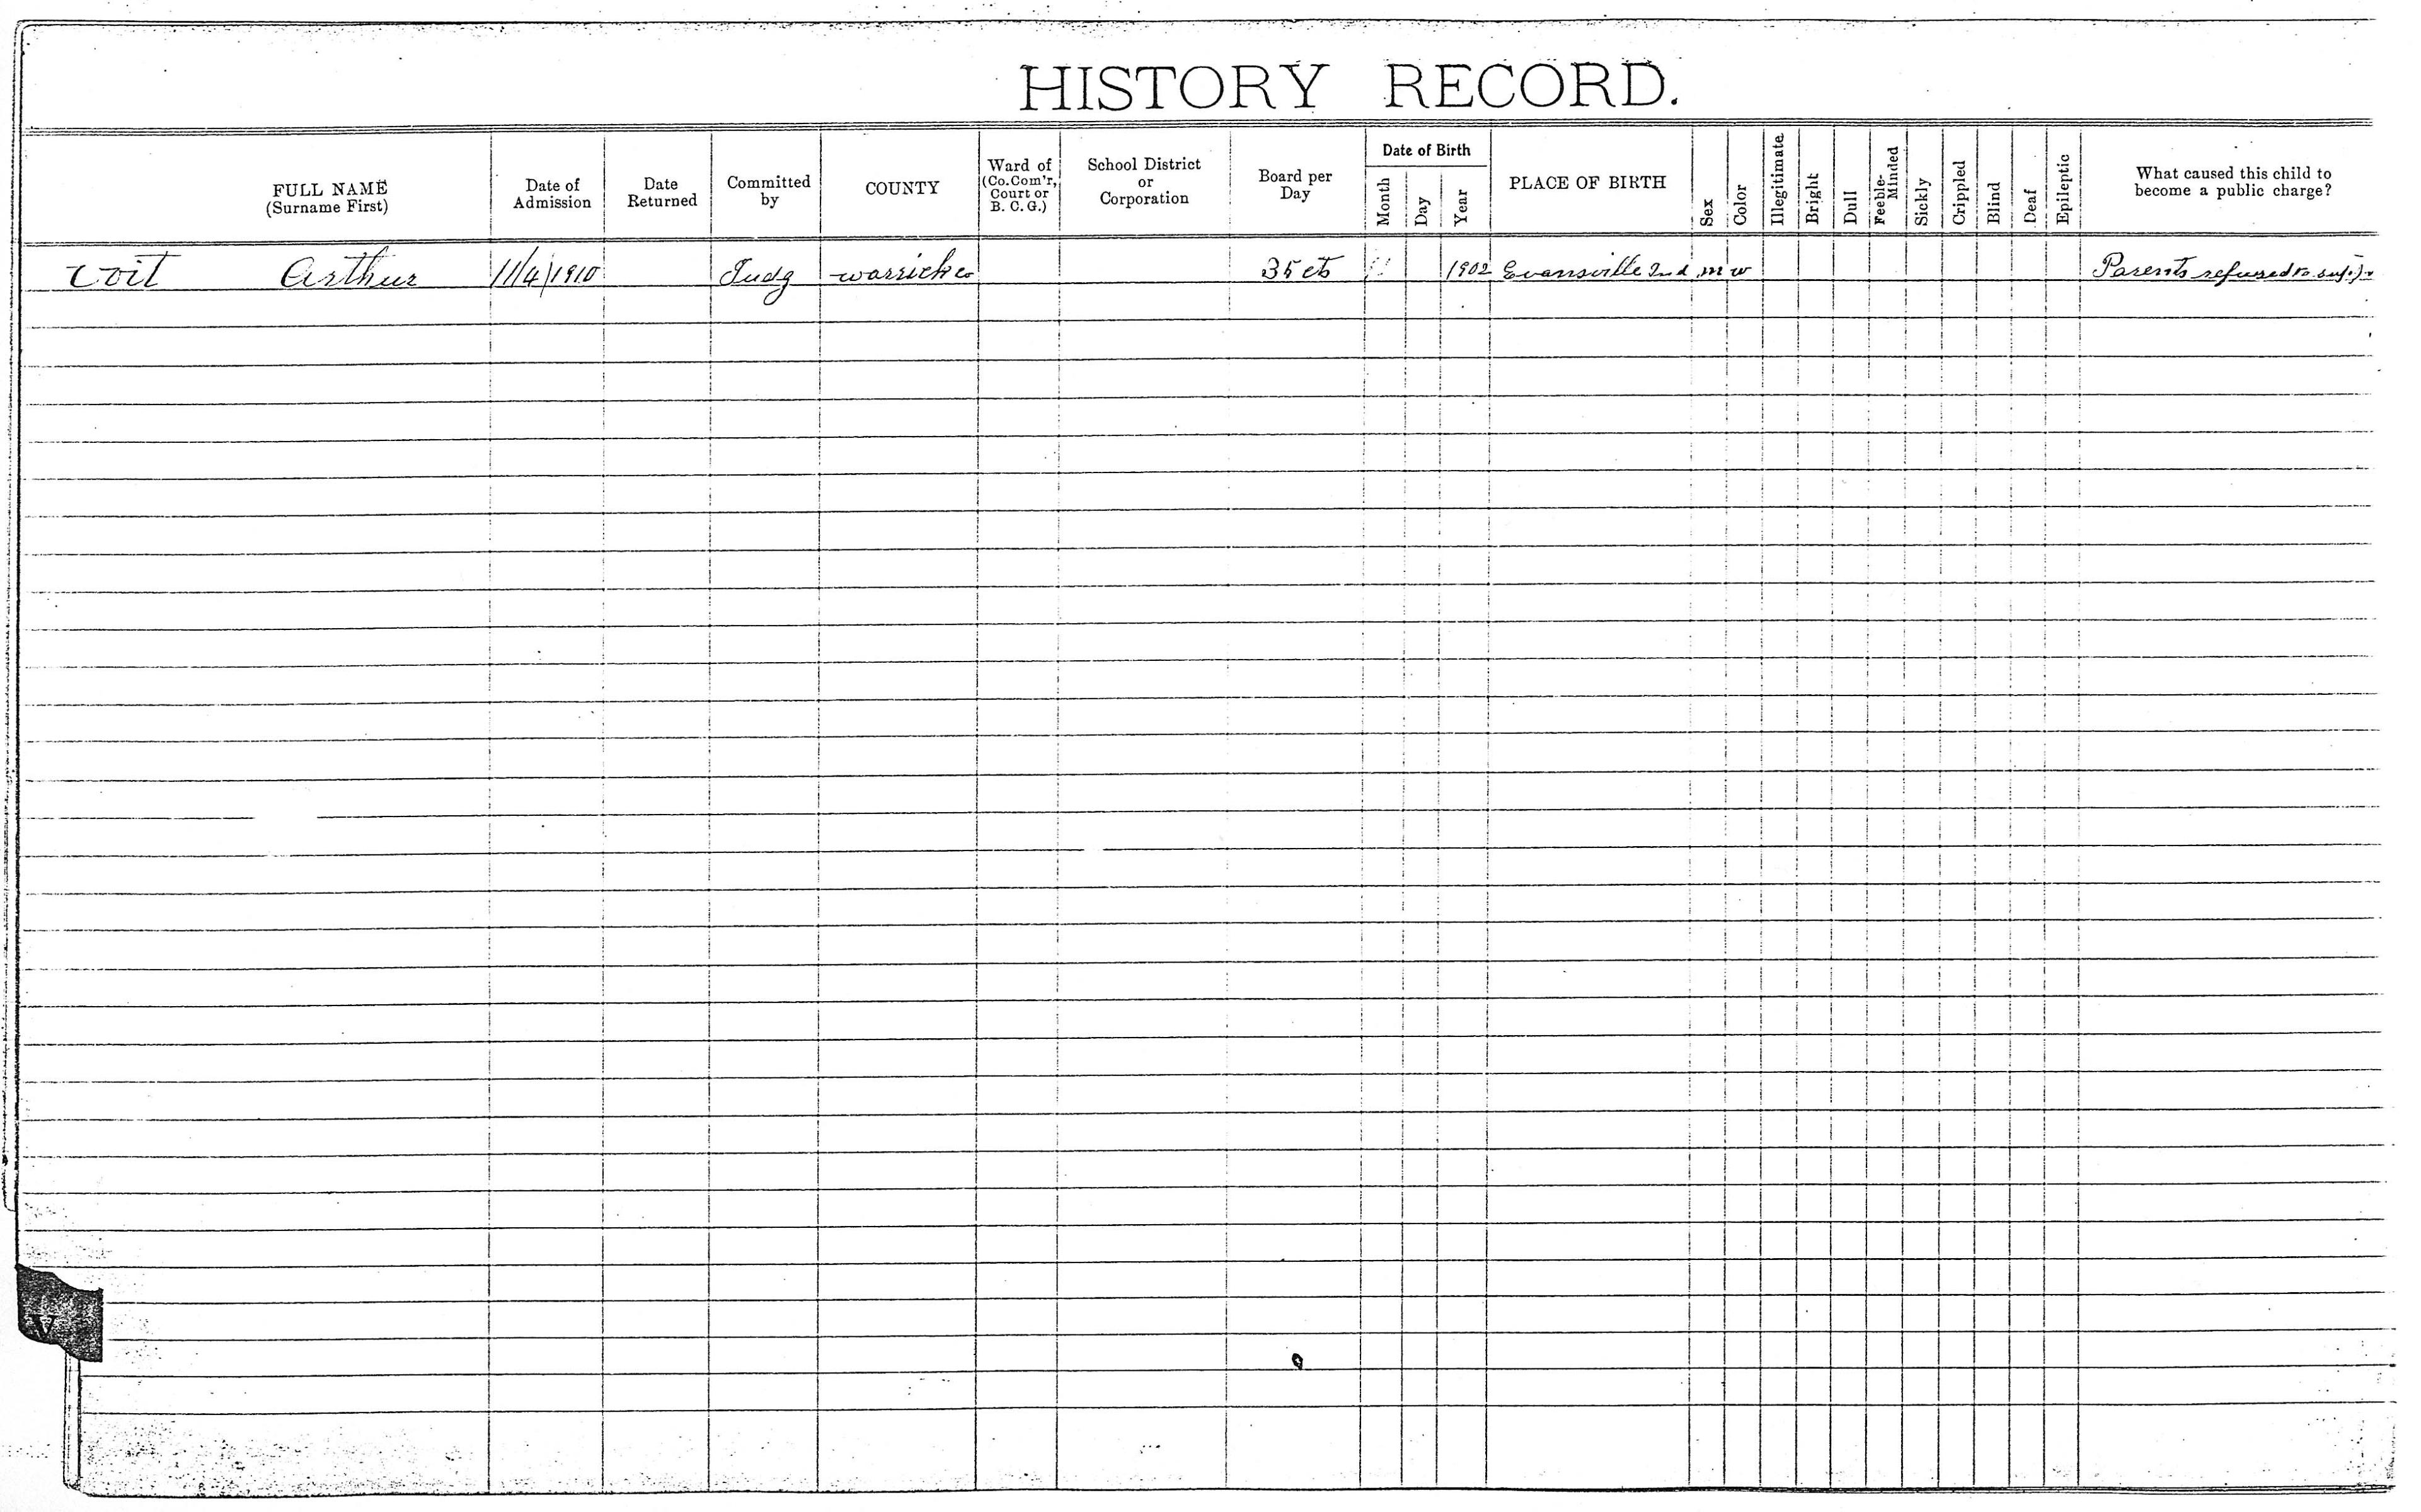 HISTORY RECORD.
FULL NAME
(Surname First)
Date of
Admission
Date
Returned
Committed
by
COUNTY
Ward of
(Co.Com'r,
Court or
B. C. G.)
School District
or
Corporation
Board per
Day
Date of Birth
Month
Day
Year
PLACE OF BIRTH
Sex
Color
Illegitimate
Bright
Dull
Feeble-
Minded
Sickly
Crippled
Blind
Deaf
Epileptic
What caused this child to
become a public charge?
Voit Arthur 11/4/1910 Judg warrick co 35 cts 1902 Evansville Ind m w Parents refused to
V